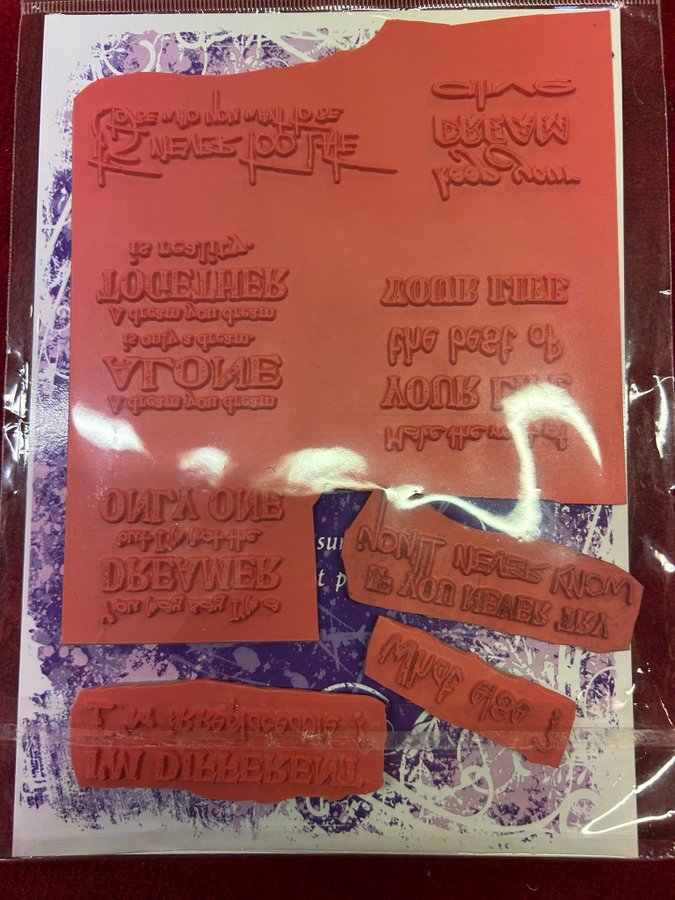 It's NEVER TOO LATE
TO BE WHO YOU WANT TO BE
keep your
DREAM
alive
A dream you dream
ALONE
is only a dream.
A dream you dream
TOGETHER
is reality.
Make the most of
YOUR LIFE
the best of
YOUR LIFE
You may say I'm a
DREAMER
but I'm not the
ONLY ONE
IF YOU NEVER TRY
YOU'LL NEVER KNOW
What else ?
I'M DIFFERENT,
I'm irreplaceable !